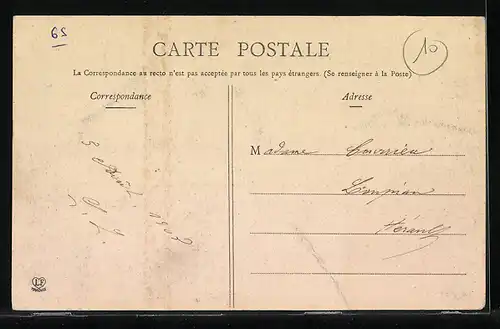 65
10
CARTE POSTALE
La Correspondance au recto n'est pas acceptée par tous les pays étrangers. (Se renseigner à la Poste)
Correspondance
Adresse
3 Août 1907
Madame
Loupian
Hérault